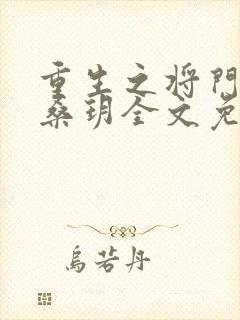 重生之将门
桑玥全文免
乌若丹